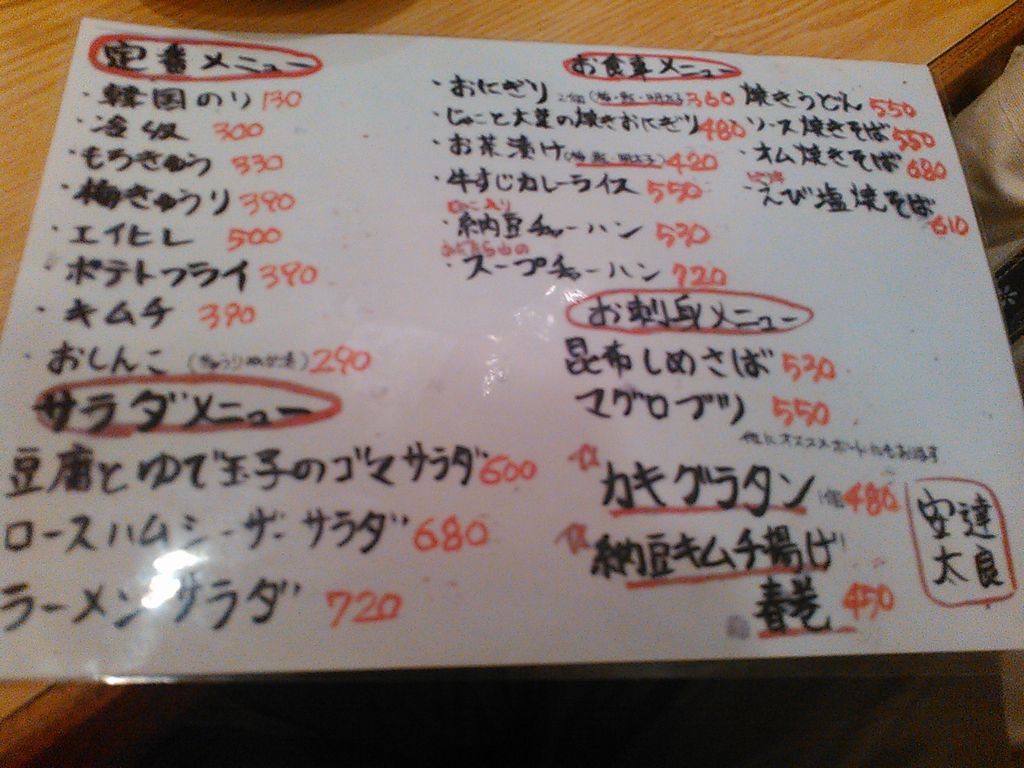 定番メニュー
・韓国のり 130
・冷奴 300
・もろきゅう 330
・梅きゅうり 390
・エイヒレ 500
・ポテトフライ 390
・キムチ 390
おしんこ 290
サラダメニュー
豆腐とゆで玉子のゴマサラダ 600
ロースハムシーザーサラダ 680
ラーメンサラダ 720
お食事メニュー
・おにぎり 2個(梅・鮭・明太子) 360
・じゃこと大葉の焼きおにぎり 480
・お茶漬け(梅・鮭・明太子) 420
・牛すじカレーライス 550
・納豆チャーハン 530
・スープチャーハン 720
焼きうどん 550
ソース焼きそば 550
・オム焼きそば 680
・えび塩焼そば 610
お刺身メニュー
昆布しめさば 530
マグロブツ 550
他にオススメボードにもあります
☆カキグラタン 1個 480
☆納豆キムチ揚げ
春巻 450
安達
太良